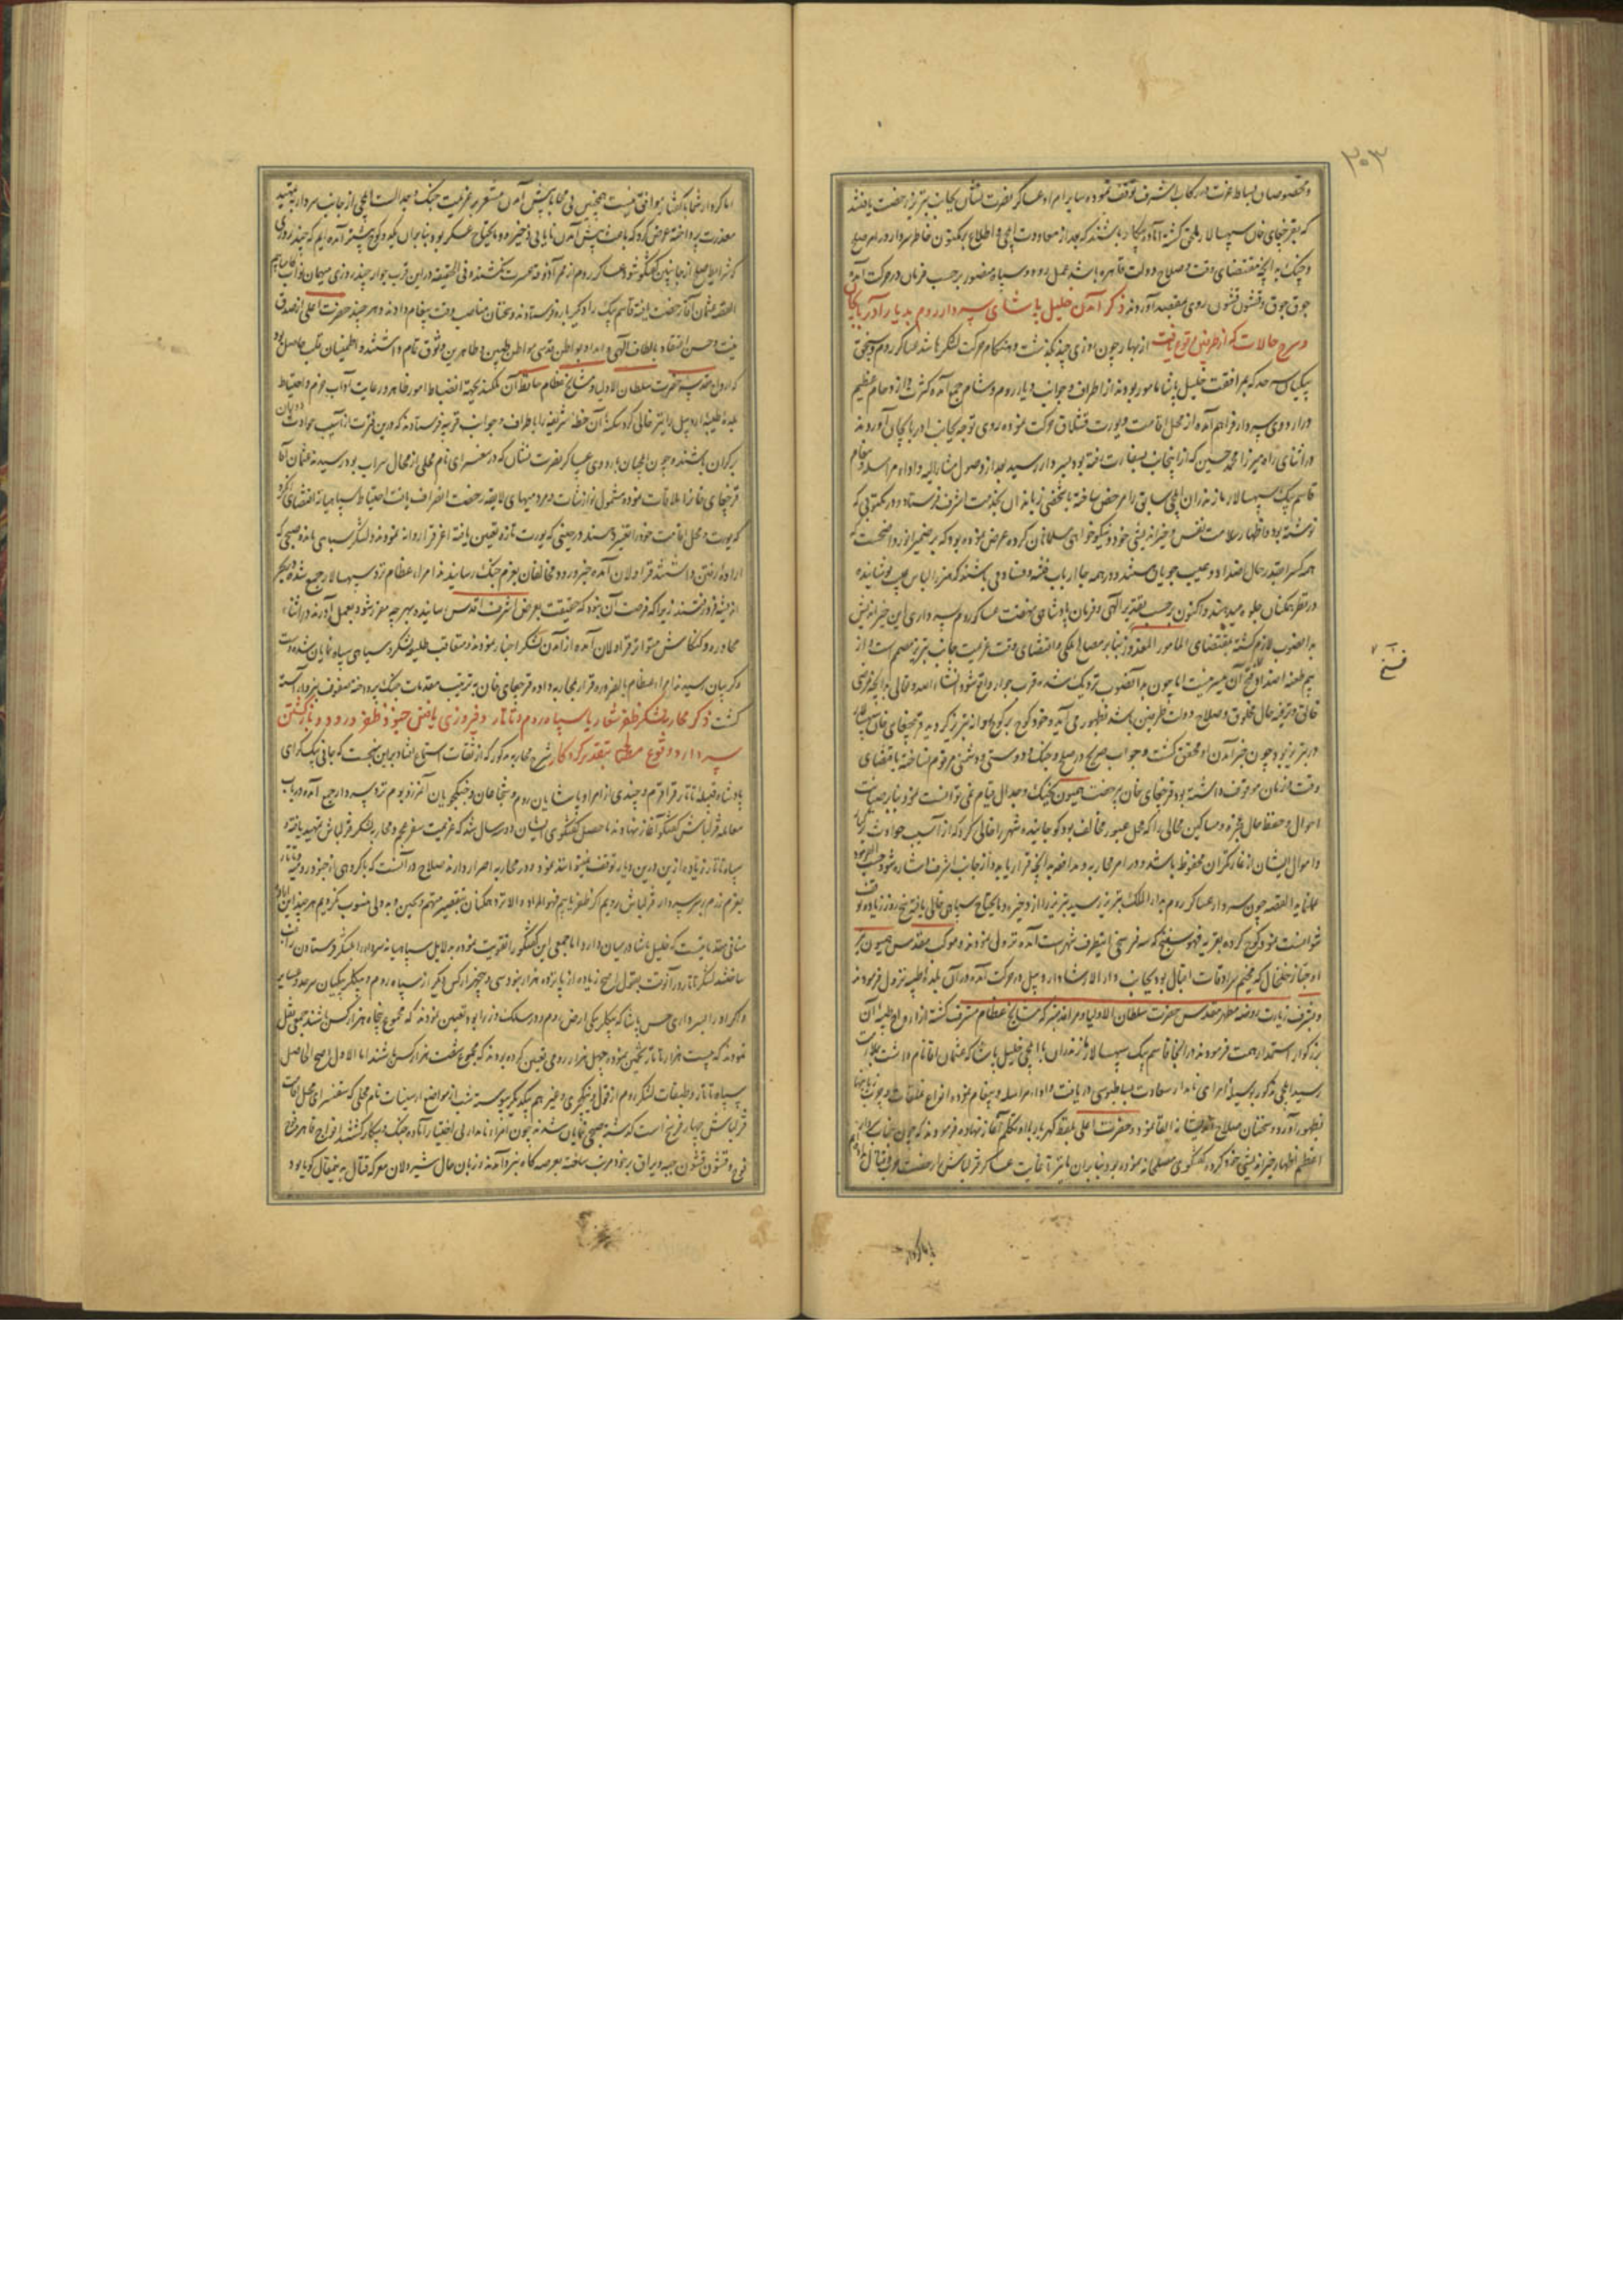 ۳۰۳
و مخصوصان بساط عزت در رکاب اشرف توقف نموده سایر امراء و عساکر نصرت نشان بجانب تبریز رخصت یافتند
که بقرچغای خان سپهسالار ملحق گشته آماده پیکار باشند که بعد از معاودت ایلچی و اطلاع بر مکنون خاطر سردار در امر صلح
و جنک به آنچه مقتضای وقت و صلاح دولت قاهره باشد بعمل رود و سپاه منصور بر حسب فرمان در حرکت آمده
جوق جوق و قشون قشون روی بمقصد آوردند ذکر آمدن خلیل پاشای سردار روم بدیار آذربایجان
و شرح حالات که از طرفین وقوع یافت از بهار چون روزی چند بگذشت و هنکام حرکت لشکر ها شد عساکر روم و
که بمرافقت خلیل پاشا مامور بودند از اطراف و جوانب دیار روم و شام جمع آمده کثرت و ازدحام عظیم
در اردوی سردار فراهم آمده از محل اقامت و یورت قشلاق حرکت نموده روی توجه بجانب آذربایجان آوردند
و در اثنای راه میرزا محمد حسین که از اینجانب بسفارت رفته بود بسردار رسید بعد از وصول مشارالیه و اداء مراسله و پیغام
قاسم بیک سپهسالار مازندران ایلچی سابق را مرخص ساخته با شخصی زباندان بخدمت اشرف فرستاد و در مکتوبی که
نوشته بود اظهار سلامت نفس و خیر اندیشی خود و نیکو خواهی مسلمانان کرده عرض نموده بود که بر ضمیر انور واضحست که
همه کس را بقدر حال اضداد و عیب جویان هستند و در همه جا ارباب فتنه و فساد می باشند که هنر را لباس عیب پوشانیده
در نظر همکنان جلوه میدهند و اکنون بر حسب تقدیر الهی و فرمان پادشاهی نهضت عساکر روم بسرداری این خیر اندیش
بدانصوب لازم گشته بمقتضای المامور المعذور بنابر مصالح ملکی و اقتضای وقت عزیمت جانب تبریز مصمم است و از
بیم طعنه اضداد فسخ آن میسر نیست اما چون بدانصوب نزدیک شده قرب جوار واقع شود انشاء الله تعالی بدانچه مرضی
خالق و ترفیه حال خلایق و صلاح دولت طرفین باشد بظهور می آید و خود کوچ بر کوچ
در تبریز بود چون خبر آمدن او محقق گشت و جواب صریح در صلح و جنک و دوستی و دشمنی مرقوم نساخته باقتضای
وقت از زمان موقوف داشته بود قرچغای خان بی رخصت همیون بجنک و جدال قیام نمی توانست نمود بنابر صیانت
احوال و حفظ حال عجزه و مساکین محالی را که محل عبور مخالف بود کوچانیده شهر را خالی کرد که از آسیب حوادث
و اموال ایشان از غارتگران محفوظ باشد و در امر محاربه و مدافعه بدانچه قرار یابد و از جانب اشرف اشاره شود حسب الفرموده
عمل نماید القصه چون سردار عساکر روم بدار الملک تبریز رسید تبریز را از ذخیره و مایحتاج سپاهی خالی یافته پنج روز زیاده توقف
نتوانست نمود کوچ کرده بقریه فهوسفنج که سه فرسخی اینطرف شهرست آمده نزول نمودند و موکب مقدس همیون نیز
از خلخال که مخیم سرادقات اقبال بود بجانب دار الارشاد اردبیل در حرکت آمده در آن بلده طیبه نزول فرمودند
و بشرف زیارت روضه مطهر مقدس حضرت سلطان الاولیا و مراقد منیره مشایخ عظام مشرف گشته از ارواح طیبه آن
بزرگوار استمداد همت فرمودند در آنجا قاسم بیک سپهسالار مازندران با ایلچی خلیل پاشا که عثمان آقا نام داشت بملازمت
رسید ایلچی مذکور بوسیله امرای نامدار سعادت بساط بوسی دریافت و اداء مراسله و پیغام نموده انواع
بظهور آورد و سخنان صلاح آمیز القا نمود و حضرت اعلی بلفظ گهربار بدو تکلم آغاز نهاده فرمودند که چون جناب
اعظم اظهار خیر اندیشی خود کرده گفتگوی مصلحانه نموده بود بنابر آن ما نیز تا غایت عساکر قزلباش را رخصت حرب و قتال
فسخ
اما کردار شما با گفتار موافق نیست همچنین بی محابا پیش آمدن مشعر بر عزیمت جنک و جدالست ایلچی از جانب سردار تمهید
معذرت پرداخته عرض کرد که باعث پیش آمدن نایابی ذخیره و مایحتاج عسکر بود بنابر آن یک دو کوچ پیشتر آمده ایم که چند روزی
که شرایط صلح از جانبین گفتگو شود عساکر روم از ممر آذوقه عسرت نکشند و فی الحقیقه در این قرب جوار چند روزی میهمان نواب
القصه عثمان آقا رخصت یافته قاسم بیک را دیگر باره فرستادند و سخنان مناسب وقت پیغام دادند و هر چند حضرت اعلی از صدق
نیت و حسن اعتقاد بالطاف الهی و امداد بواطن قدسی مواطن طیبین و طاهرین وثوق تمام داشتند و اطمینان قلب حاصل بود
که ارواح مقدسه حضرت سلطان الاولیا و مشایخ عظام حافظ آن ملکند بجهة انضباط امور ظاهر و رعایت آداب حزم و احتیاط
بلده طیبه اردبیل را نیز خالی کرده سکنه آن خطه شریفه را باطراف و جوانب قریبه فرستادند که در این فترت از آسیب حوادث
بر کران باشند و چون ایلچیان باردوی عساکر نصرت نشان که در سقنسرای نام محلی از محال سراب بود رسیدند عثمان آقا
قرچغای خان را ملاقات نموده مشمول نوازشات و مردمیهای لایقه رخصت انصراف یافت احتیاط سپاهیانه اقتضای آن کرد
که یورت و محل اقامت خود را تغییر دهند و در حینی که یورت تازه تعیین یافته اغرق را روانه نمودند و لشکر سپاهی مانده صبحی که
اراده رفتن داشتند قراولان آمده خبر ورود مخالفان بعزم جنک رسانیدند امراء عظام نزد سپهسالار جمع شده بحر
اندیشه فرو رفتند زیرا که فرصت آن نبود که حقیقت بعرض اشرف اقدس رسانیده بهر چه مقرر شود بعمل آورند در اثناء
محاوره و کنکاش متواتر قراولان آمده از آمدن لشکر اخبار نمودند و متعاقب طلیعه لشکر و سیاهی سپاه نمایان شده دست
و گریبان رسیدند امراء عظام بالضروره قرار محاربه داده قرچغای خان به ترتیب مقدمات جنک پرداخته صفوف نبرد آراسته
گشت ذکر محاربه لشکر ظفر شعار با سپاه روم و تاتار و فیروزی یافتن جنود ظفر ورود و بازگشتن
سردار و وقوع صلح بتقدیر کردگار شرح محاربه مذکور که از ثقات استماع افتاد بر این نهجست که جانی بیک گرای
پادشاه قبیله تاتار قرا قرم و چندی از امراء و پاشایان روم و شجاعان و جنگجویان آن مرز و بوم نزد سردار جمع آمده در باب
معامله قزلباش گفتگو آغاز نهادند ماحصل گفتگوی ایشان در این سال شد که عزیمت سفر عجم و محاربه لشکر قزلباش تمهید یافته
سپاه تاتار زیاده از این در این دیار توقف نمیتوانند نمود و در محاربه اصرار دارند صلاح در آنست که با گروهی از جنود رومیه و تاتار
بعزم رزم بر سر سپهدار قزلباش رویم اگر ظفر یابیم فهو المراد و الا نزد همکنان بتقصیر متهم و بجبن و بد دلی منسوب نگردیم هر چند این اراده
منافی مقدمایست که خلیل پاشا در میان دارد اما جمعی این گفتگو را تقویت نموده بدلایل سپاهیانه سردار را بلشکر فرستادن راغب
ساختند لشکر تاتار در آنوقت بقول اصح زیاده از پانزده هزار بود سی و پنجهزار کس دیگر از سپاه روم و بیکلر بیکیان سرحد و
و اکراد را بسرداری حسن پاشا که بیکلر بیکی ارض روم و در سلک وزرا بود تعیین نمودند که مجموع پنجاه هزار کس باشند جمعی نقل
نمودند که بیست هزار تاتار تخمین نموده چهل هزار رومی تعیین کرده بودند که مجموع شصت هزار کس باشند اما الاول اصح الحاصل
سپاه تاتار و طبقات لشکر روم از قول و ینکچری و غیر هم بیکدیگر پیوسته شب از مواضع ارسینات نام محلی که سقنسرای محل اقامت
قزلباش چهار فرسخ است که شبی صبحی نمایان شدند چون امراء نامدار بی اختیار آماده جنک و پیکار گشتند افواج قاهره فوج
فوج و قشون قشون جبه و یراق بر خود مرتب ساخته بعرصه کاه نبرد آمدند از زبان حال شیردلان معرکه قتال به نیمقال گویا بود